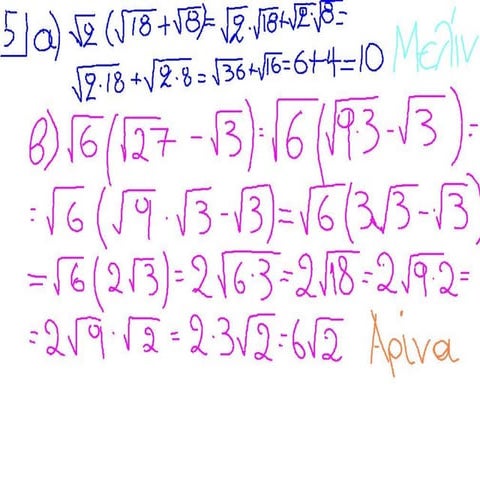 5] α) √2 (√18 + √8) = √2 · √18 + √2 · √8 = Μελίν
√2·18 + √2·8 = √36 + √16 = 6 + 4 = 10
β) √6 (√27 - √3) = √6 (√9·3 - √3) =
= √6 (√9 · √3 - √3) = √6 (3√3 - √3)
= √6 (2√3) = 2√6·3 = 2√18 = 2√9·2 =
= 2√9 · √2 = 2·3√2 = 6√2 Αρίνα